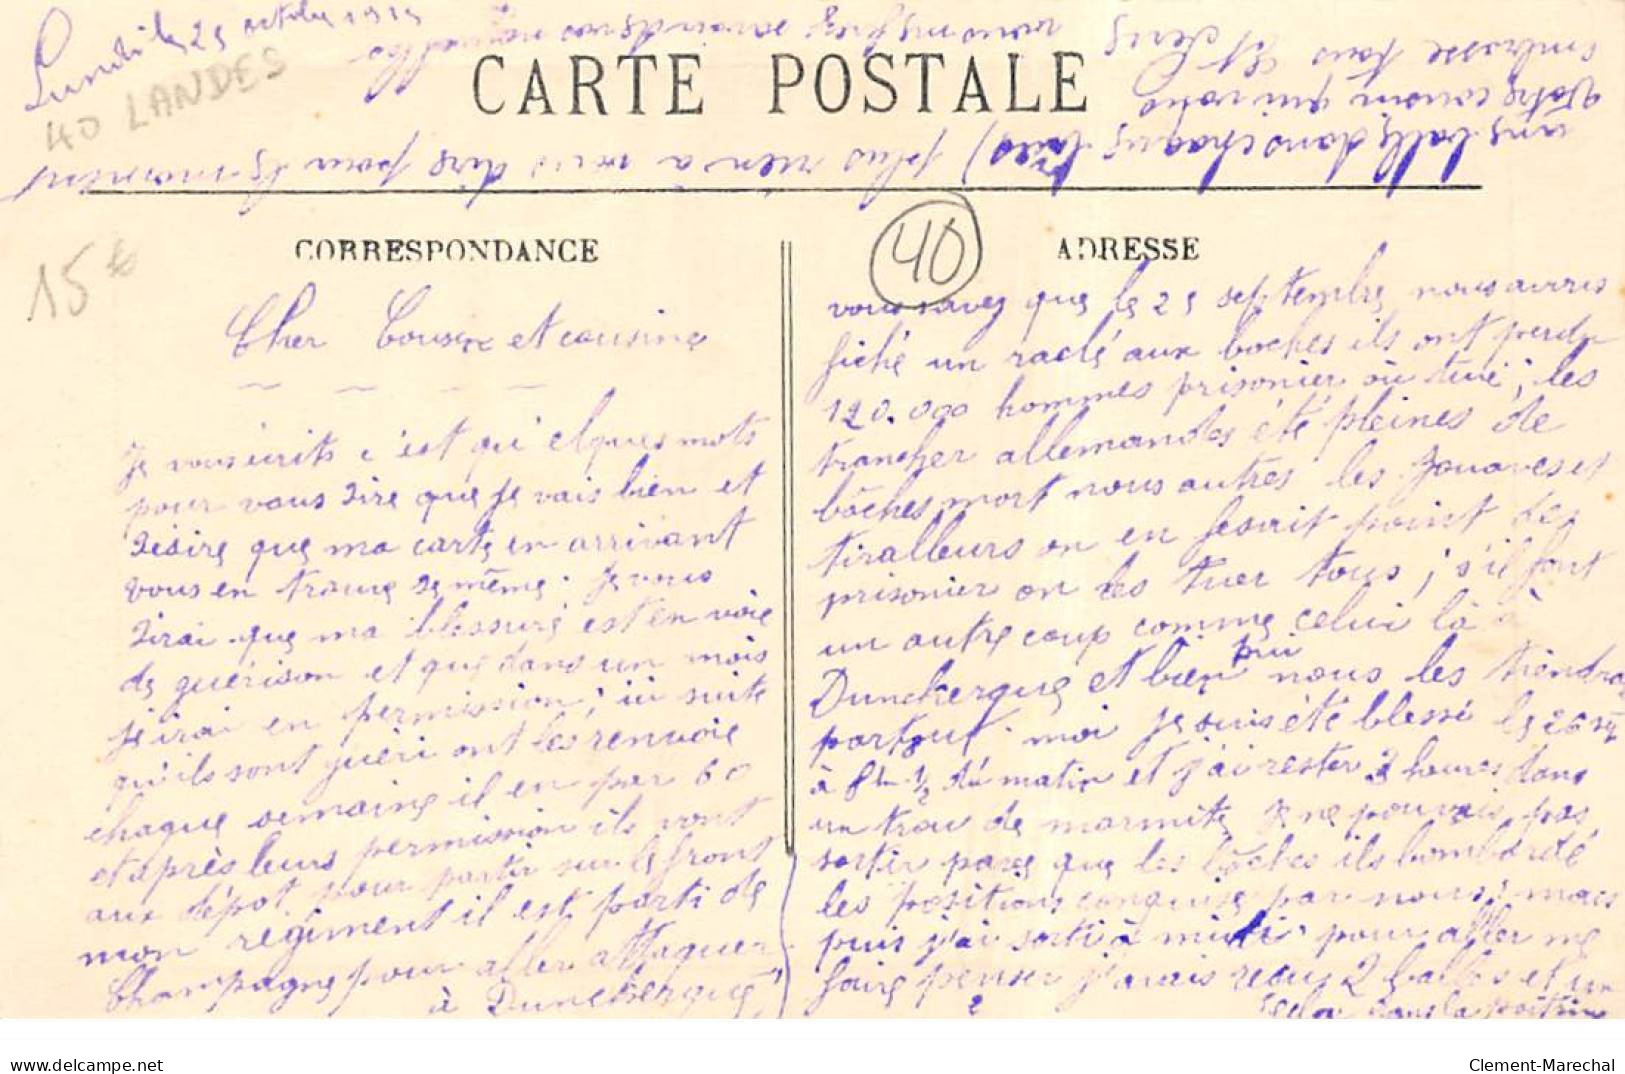 Lundi le 25 octobre 1915
40 LANDES
CARTE POSTALE
CORRESPONDANCE
15
40
ADRESSE
Cher Cousin et cousine
Je vous écrits c'est qu'elques mots
pour vous dire que je vais bien et
désire que ma carte en arrivant
vous en trouve de même. Je vous
dirai que ma blessure est en voie
de guérison et que dans un mois
j'irai en permission; ici suite
qu'ils sont guéri ont les renvoie
chaque semaine il en par 60
et après leurs permission ils vont
aux dépot pour partir sur le front
mon régiment il est parti de
Champagne pour aller attaquer
à Duncherque
vous savez que le 25 septembre nous avons
fiché un raclé aux boches ils ont perdu
120.000 hommes prisonier où tué; les
trancher allemandes été pleines de
bôches mort nous autres les zouaves et
tiralleurs on en fesait point de
prisonier on les tuer tous; s'il font
un autre coup comme celui là à
Duncherque et bien nous les tiendra
partout. moi je suis été blessé le 26
à 8h 1/2 du matin et j'ai rester 3 heures dans
un trou de marmite je ne pouvais pas
sortir parce que les bôches ils bombardé
les positions conquise par nous; mais
puis j'ai sorti à midi pour aller me
faire penser j'avais reçus 2 balles et un
éclat dans la poitrine
une balle dans chaque bras) plus rien à vous dire pour le moment
Votre cousin qui vous
embrasse tous
delcampe.net
Clement-Marechal